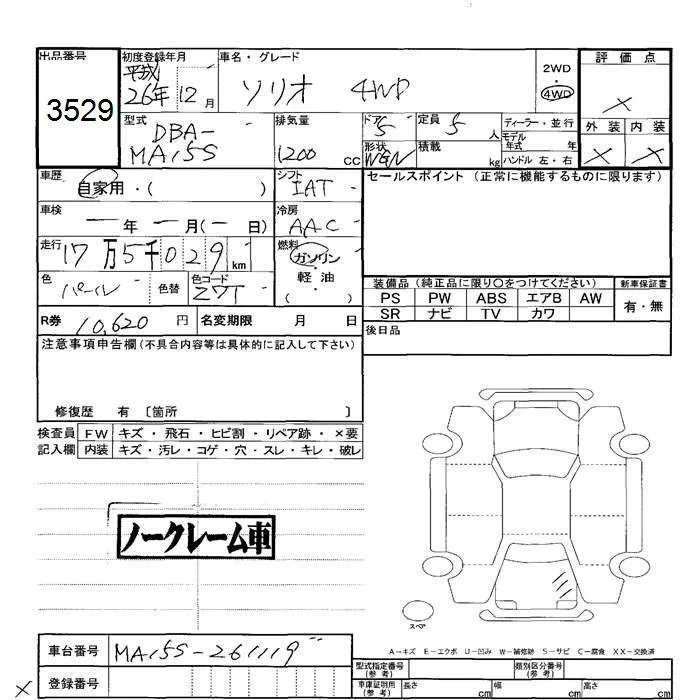 出品番号 初度登録年月 車名・グレード 2WD 4WD 評価点
3529 平成 26年 12月 ソリオ 4WD ×
外装 内装
× ×
型式 DBA- MA15S 排気量 1200 cc ドア 5 定員 5 人 ディーラー・並行
形状 WGN 積載 kg モデル年式 年 ハンドル 左・右
車歴 自家用・( ) シフト IAT セールスポイント (正常に機能するものに限ります)
車検 ー年 ー月(ー日) 冷房 AAC
走行 17万5千029km 燃料 ガソリン・軽油 ( )
色 パール 色替 色コード Z7T
装備品 (純正品に限り○をつけてください) 新車保証書
PS PW ABS エアB AW 有・無
SR ナビ TV カワ
R券 10,620円 名変期限 月 日 後日品
注意事項申告欄(不具合内容等は具体的に記入して下さい)
修復歴 有 〔箇所 〕
検査員 FW キズ・飛石・ヒビ割・リペア跡・×要
記入欄 内装 キズ・汚レ・コゲ・穴・スレ・キレ・破レ
ノークレーム車
スペア
A-キズ E-エクボ U-凹み W-補修跡 S-サビ C-腐食 XX-交換済
車台番号 MA15S-261119
型式指定番号(参考) 類別区分番号(参考)
× 登録番号 車庫証明用(参考) 長さ cm 幅 cm 高さ cm